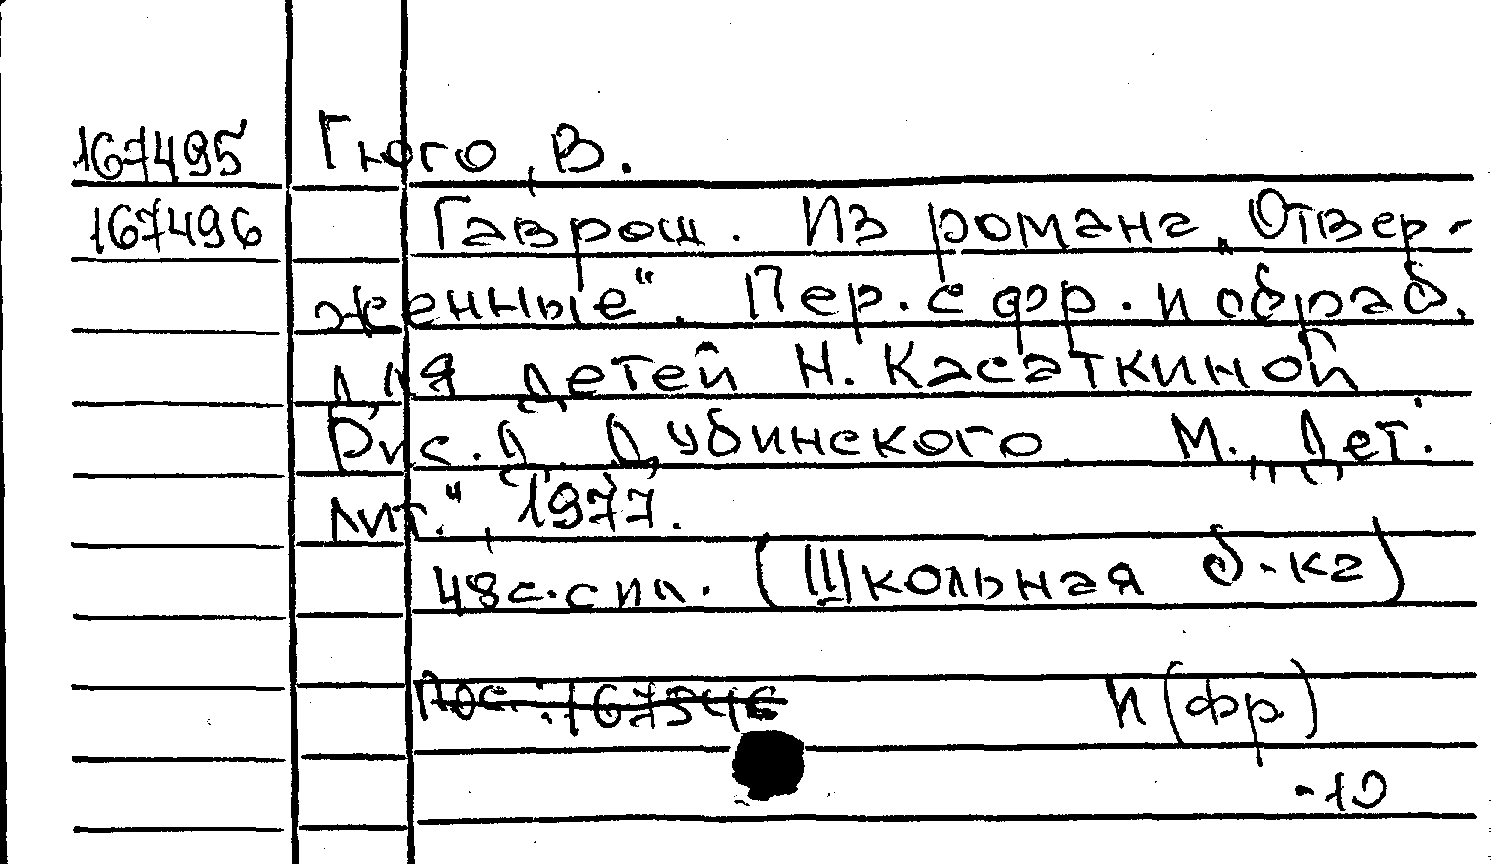 167495 Гюго, В.
167496 Гаврош. Из романа „Отвер-
женные“. Пер. с фр. и обраб.
для детей Н. Касаткиной
Рис. Д. Дубинского. М., „Дет.
лит.“, 1977.
48 с. с ил. (Школьная б-ка)
И(фр)
-10